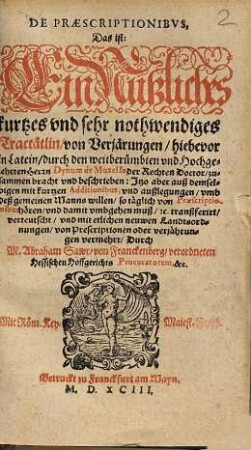 DE PRÆSCRIPTIONIBVS,
Das ist:
Ein Nützlichs
kurtzes vnd sehr nothwendiges
Tractätlin/ von Verjärungen/ hiebevor
in Latein/ durch den weitberümbten vnd Hochge-
lehrten Herrn Dynum de Muxello der Rechten Doctor/ zu-
sammen bracht vnd beschrieben: Jtzo aber auß demsel-
bigen mit kurtzen Additionibus, vnd außlegungen/ vmb
deß gemeinen Manns willen/ so täglich von Præscriptio-
nibus hören/ vnd damit vmbgehen muß/ ꝛc. transferiert/
verteutscht/ vnd mit etlichen neuwen Landtsord-
nungen/ von Prescriptionen oder verjährun-
gen vermehrt/ Durch
M. Abraham Sawr/ von Franckenberg/ verordneten
Hessischen Hoffgerichts Procuratorem, &c.
Mit Röm. Key. Maiest.
Getruckt zu Franckfurt am Mayn.
M. D. XCIII.